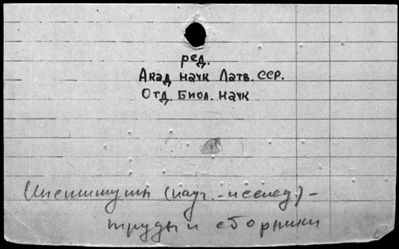 ред.
Акад наук Латв. ССР.
Отд. Биол. наук
Институты (науч.-исслед) -
труды и сборники